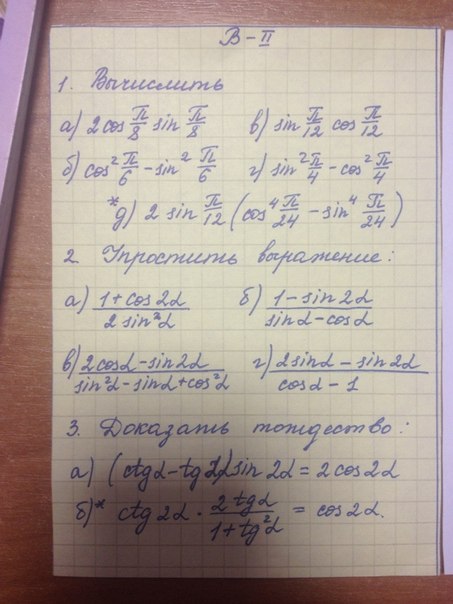 В – II
1. Вычислить
а) 2 cos π/8 sin π/8 в) sin π/12 cos π/12
б) cos² π/6 – sin² π/6 г) sin² π/4 – cos² π/4
*д) 2 sin π/12 (cos⁴ π/24 – sin⁴ π/24)
2. Упростить выражение:
а) (1 + cos 2α)/(2 sin²α) б) (1 – sin 2α)/(sin α – cos α)
в) (2 cos α – sin 2α)/(sin²α – sin α + cos²α) г) (2 sin α – sin 2α)/(cos α – 1)
3. Доказать тождество:
а) (ctg α – tg α) sin 2α = 2 cos 2α
б)* ctg 2α · (2 tg α)/(1 + tg²α) = cos 2α.